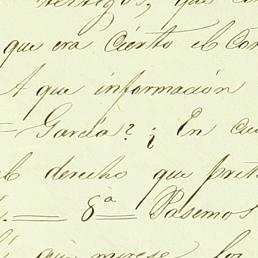 testigos, que
que era cierto el Con
A que información
= García? ¿ En cu
el derecho que pret
8ª == Pasemos
que